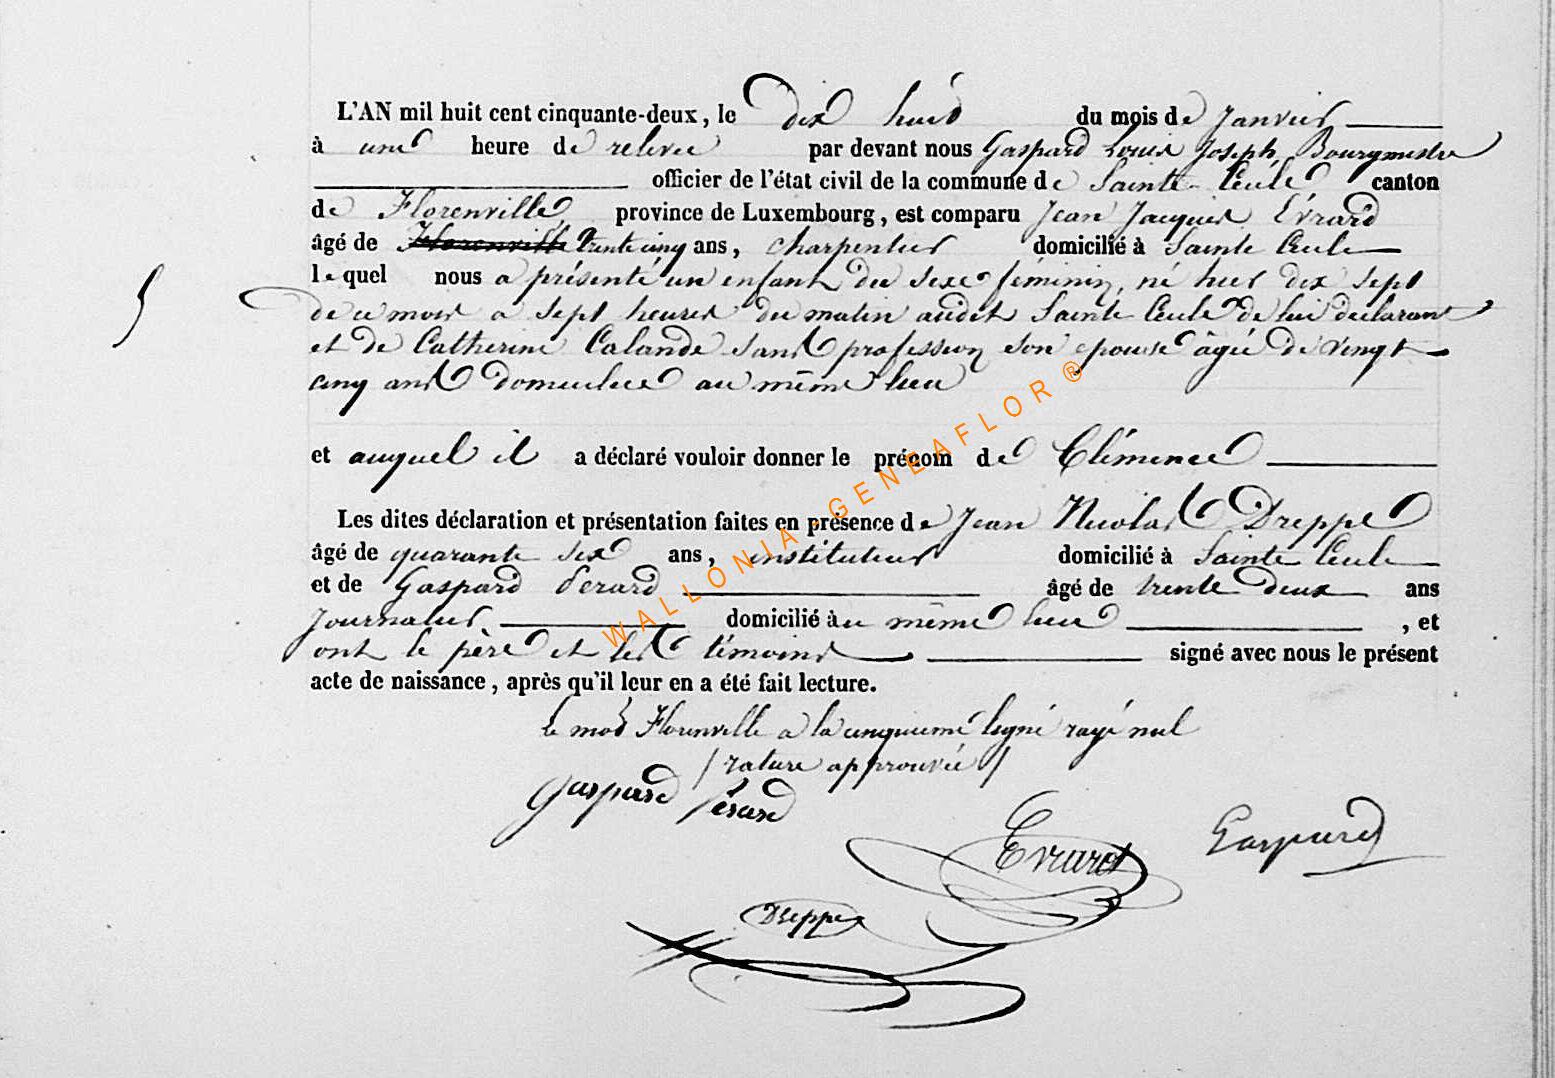 L'AN mil huit cent cinquante-deux, le dix huit du mois de Janvier
à une heure de relevée par devant nous Gaspard Louis Joseph, Bourgmestre
officier de l'état civil de la commune de Sainte Cécile canton
de Florenville province de Luxembourg, est comparu Jean Jacques Evrard
âgé de Florenville trente cinq ans, charpentier domicilié à Sainte Cécile
lequel nous a présenté un enfant du sexe féminin, né hier dix sept
5
de ce mois a sept heures du matin audit Sainte Cécile de lui déclarant
et de Catherine Calande sans profession son épouse âgée de vingt
cinq ans domiciliée au même lieu
et auquel il a déclaré vouloir donner le prénom de Clémence
Les dites déclaration et présentation faites en présence de Jean Nicolas Dreppe
âgé de quarante six ans, instituteur domicilié à Sainte Cécile
et de Gaspard Pérard âgé de trente deux ans
Journalier domicilié au même lieu, et
ont le père et les témoins signé avec nous le présent
acte de naissance, après qu'il leur en a été fait lecture.
le mot Florenville a la cinquième ligne rayé nul
/ rature approuvée /
Gaspard Pérard
Evrard
Gaspard
Dreppe
WALLONIA-GENEAFLOR ®